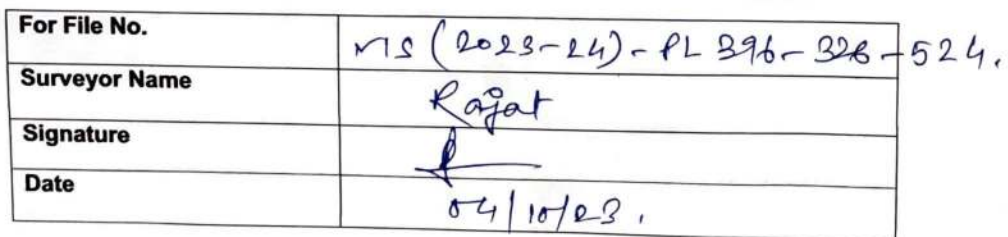 For File No. VIS (2023-24)-PL 396-326-524.
Surveyor Name Rajat
Signature
Date 04/10/23.